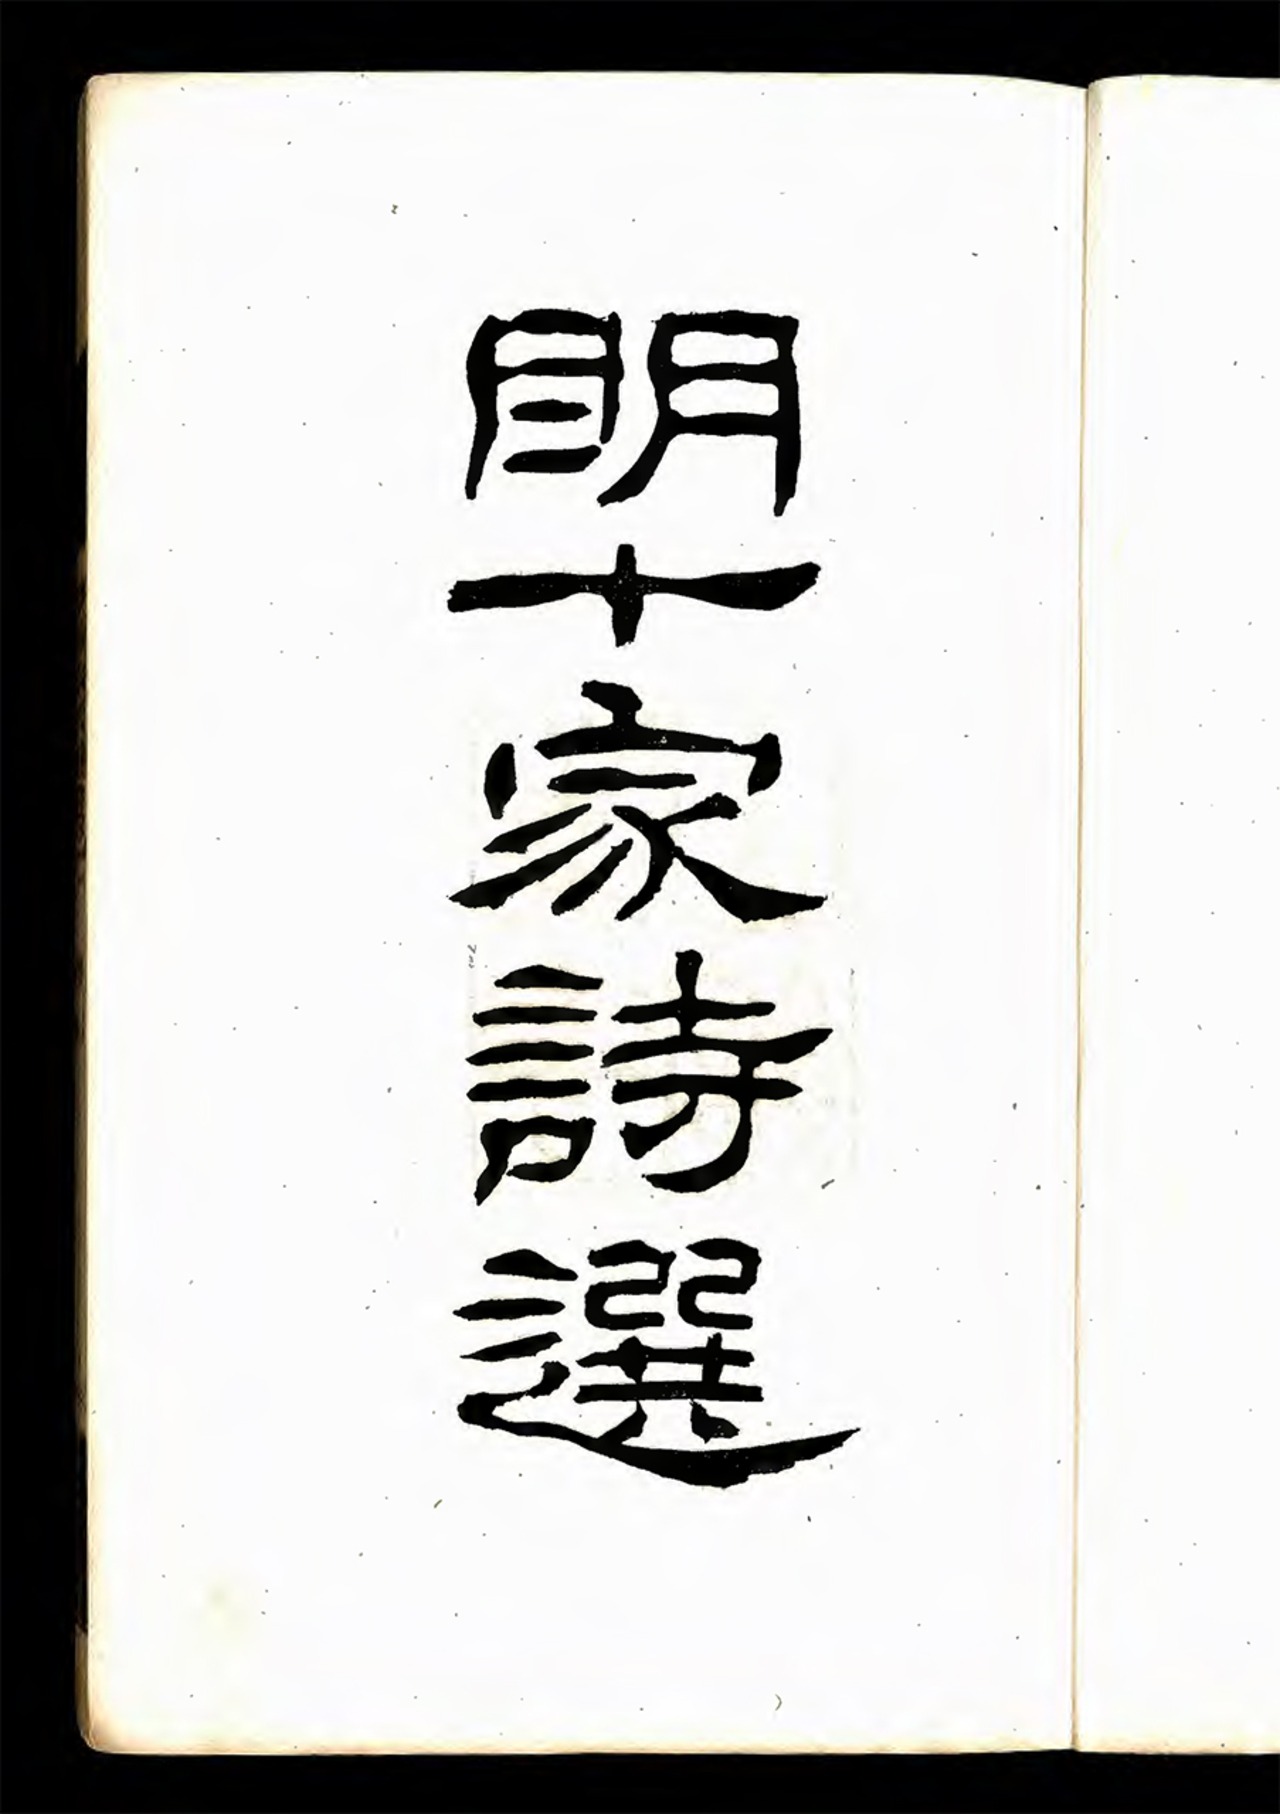 明十家詩選